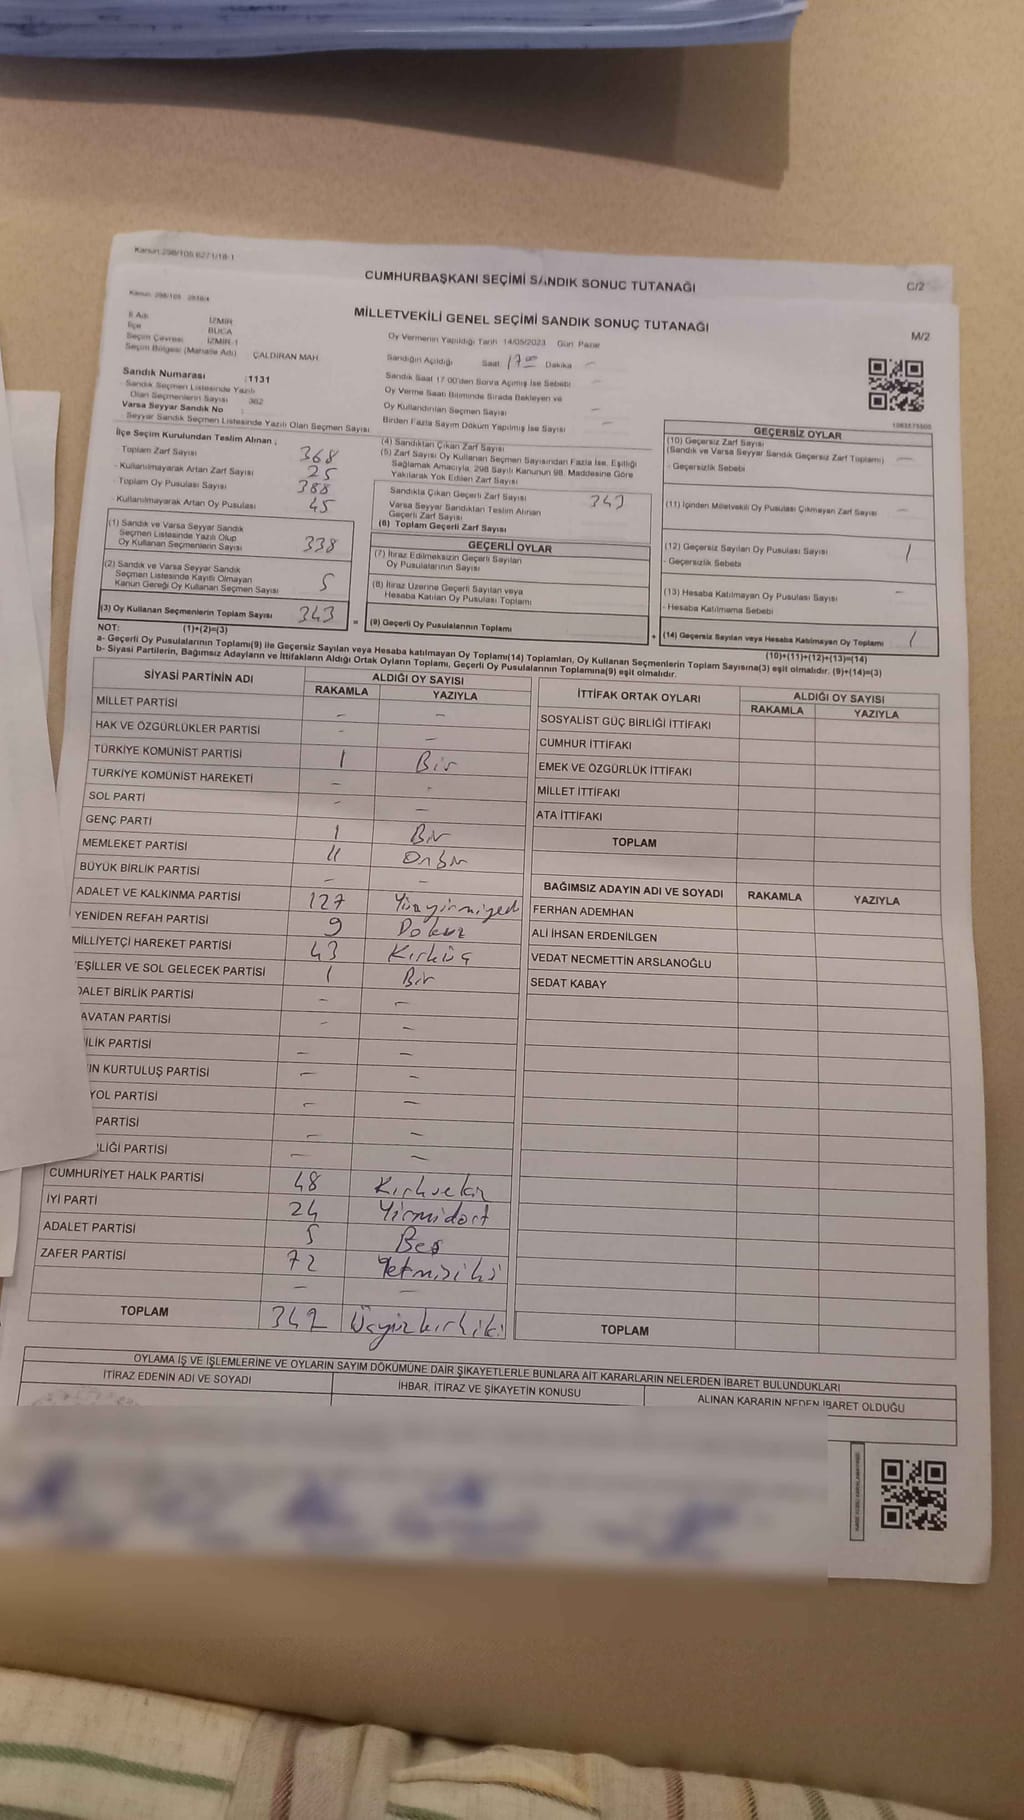 Kanun:298/105,6271/18-1
CUMHURBAŞKANI SEÇİMİ SANDIK SONUÇ TUTANAĞI
C/2
Kanun: 298/105 2839/4
MİLLETVEKİLİ GENEL SEÇİMİ SANDIK SONUÇ TUTANAĞI
M/2
İl Adı İZMİR
İlçe BUCA
Seçim Çevresi İZMİR-1
Seçim Bölgesi (Mahalle Adı) ÇALDIRAN MAH.
Oy Vermenin Yapıldığı Tarih 14/05/2023 Gün Pazar
Sandığın Açıldığı Saat 17 00 Dakika –
Sandık Saat 17:00'den Sonra Açılmış İse Sebebi –
Oy Verme Saati Bitiminde Sırada Bekleyen ve
Oy Kullandırılan Seçmen Sayısı –
Birden Fazla Sayım Döküm Yapılmış İse Sayısı –
Sandık Numarası :1131
Sandık Seçmen Listesinde Yazılı
Olan Seçmenlerin Sayısı 382
Varsa Seyyar Sandık No :
Seyyar Sandık Seçmen Listesinde Yazılı Olan Seçmen Sayısı
İlçe Seçim Kurulundan Teslim Alınan ;
Toplam Zarf Sayısı 368
- Kullanılmayarak Artan Zarf Sayısı 25
- Toplam Oy Pusulası Sayısı 388
- Kullanılmayarak Artan Oy Pusulası 45
(1) Sandık ve Varsa Seyyar Sandık
Seçmen Listesinde Yazılı Olup
Oy Kullanan Seçmenlerin Sayısı 338
(2) Sandık ve Varsa Seyyar Sandık
Seçmen Listesinde Kayıtlı Olmayan
Kanun Gereği Oy Kullanan Seçmen Sayısı 5
(3) Oy Kullanan Seçmenlerin Toplam Sayısı 343
(1)+(2)=(3)
(4) Sandıktan Çıkan Zarf Sayısı
(5) Zarf Sayısı Oy Kullanan Seçmen Sayısından Fazla İse, Eşitliği
Sağlamak Amacıyla, 298 Sayılı Kanunun 98. Maddesine Göre
Yakılarak Yok Edilen Zarf Sayısı
Sandıkla Çıkan Geçerli Zarf Sayısı 343
Varsa Seyyar Sandıktan Teslim Alınan
Geçerli Zarf Sayısı
(6) Toplam Geçerli Zarf Sayısı
GEÇERLİ OYLAR
(7) İtiraz Edilmeksizin Geçerli Sayılan
Oy Pusulalarının Sayısı
(8) İtiraz Üzerine Geçerli Sayılan veya
Hesaba Katılan Oy Pusulası Toplamı
= (9) Geçerli Oy Pusulalarının Toplamı
GEÇERSİZ OYLAR
(10) Geçersiz Zarf Sayısı
(Sandık ve Varsa Seyyar Sandık Geçersiz Zarf Toplamı) –
- Geçersizlik Sebebi
(11) İçinden Milletvekili Oy Pusulası Çıkmayan Zarf Sayısı –
(12) Geçersiz Sayılan Oy Pusulası Sayısı 1
- Geçersizlik Sebebi
(13) Hesaba Katılmayan Oy Pusulası Sayısı –
- Hesaba Katılmama Sebebi
+ (14) Geçersiz Sayılan veya Hesaba Katılmayan Oy Toplamı 1
(10)+(11)+(12)+(13)=(14)
NOT:
a- Geçerli Oy Pusulalarının Toplamı(9) ile Geçersiz Sayılan veya Hesaba katılmayan Oy Toplamı(14) Toplamları, Oy Kullanan Seçmenlerin Toplam Sayısına(3) eşit olmalıdır. (9)+(14)=(3)
b- Siyasi Partilerin, Bağımsız Adayların ve İttifakların Aldığı Ortak Oyların Toplamı, Geçerli Oy Pusulalarının Toplamına(9) eşit olmalıdır.
SİYASİ PARTİNİN ADI ALDIĞI OY SAYISI
RAKAMLA YAZIYLA
MİLLET PARTİSİ – –
HAK VE ÖZGÜRLÜKLER PARTİSİ – –
TÜRKİYE KOMÜNİST PARTİSİ 1 Bir
TÜRKİYE KOMÜNİST HAREKETİ – -
SOL PARTİ – –
GENÇ PARTİ 1 Bir
MEMLEKET PARTİSİ 11 Onbir
BÜYÜK BİRLİK PARTİSİ – –
ADALET VE KALKINMA PARTİSİ 127 Yüzyirmiyedi
YENİDEN REFAH PARTİSİ 9 Dokuz
MİLLİYETÇİ HAREKET PARTİSİ 43 Kırküç
EŞİLLER VE SOL GELECEK PARTİSİ 1 Bir
DALET BİRLİK PARTİSİ – –
AVATAN PARTİSİ – –
İLİK PARTİSİ – –
IN KURTULUŞ PARTİSİ – –
YOL PARTİSİ – –
PARTİSİ – –
LİĞİ PARTİSİ – –
CUMHURİYET HALK PARTİSİ 48 Kırksekiz
İYİ PARTİ 24 Yirmidört
ADALET PARTİSİ 5 Beş
ZAFER PARTİSİ 72 Yetmişiki
– –
TOPLAM 342 Üçyüzkırkiki
İTTİFAK ORTAK OYLARI ALDIĞI OY SAYISI
RAKAMLA YAZIYLA
SOSYALİST GÜÇ BİRLİĞİ İTTİFAKI
CUMHUR İTTİFAKI
EMEK VE ÖZGÜRLÜK İTTİFAKI
MİLLET İTTİFAKI
ATA İTTİFAKI
TOPLAM
BAĞIMSIZ ADAYIN ADI VE SOYADI RAKAMLA YAZIYLA
FERHAN ADEMHAN
ALİ İHSAN ERDENİLGEN
VEDAT NECMETTİN ARSLANOĞLU
SEDAT KABAY
TOPLAM
OYLAMA İŞ VE İŞLEMLERİNE VE OYLARIN SAYIM DÖKÜMÜNE DAİR ŞİKAYETLERLE BUNLARA AİT KARARLARIN NELERDEN İBARET BULUNDUKLARI
İTİRAZ EDENİN ADI VE SOYADI İHBAR, İTİRAZ VE ŞİKAYETİN KONUSU ALINAN KARARIN NEDEN İBARET OLDUĞU